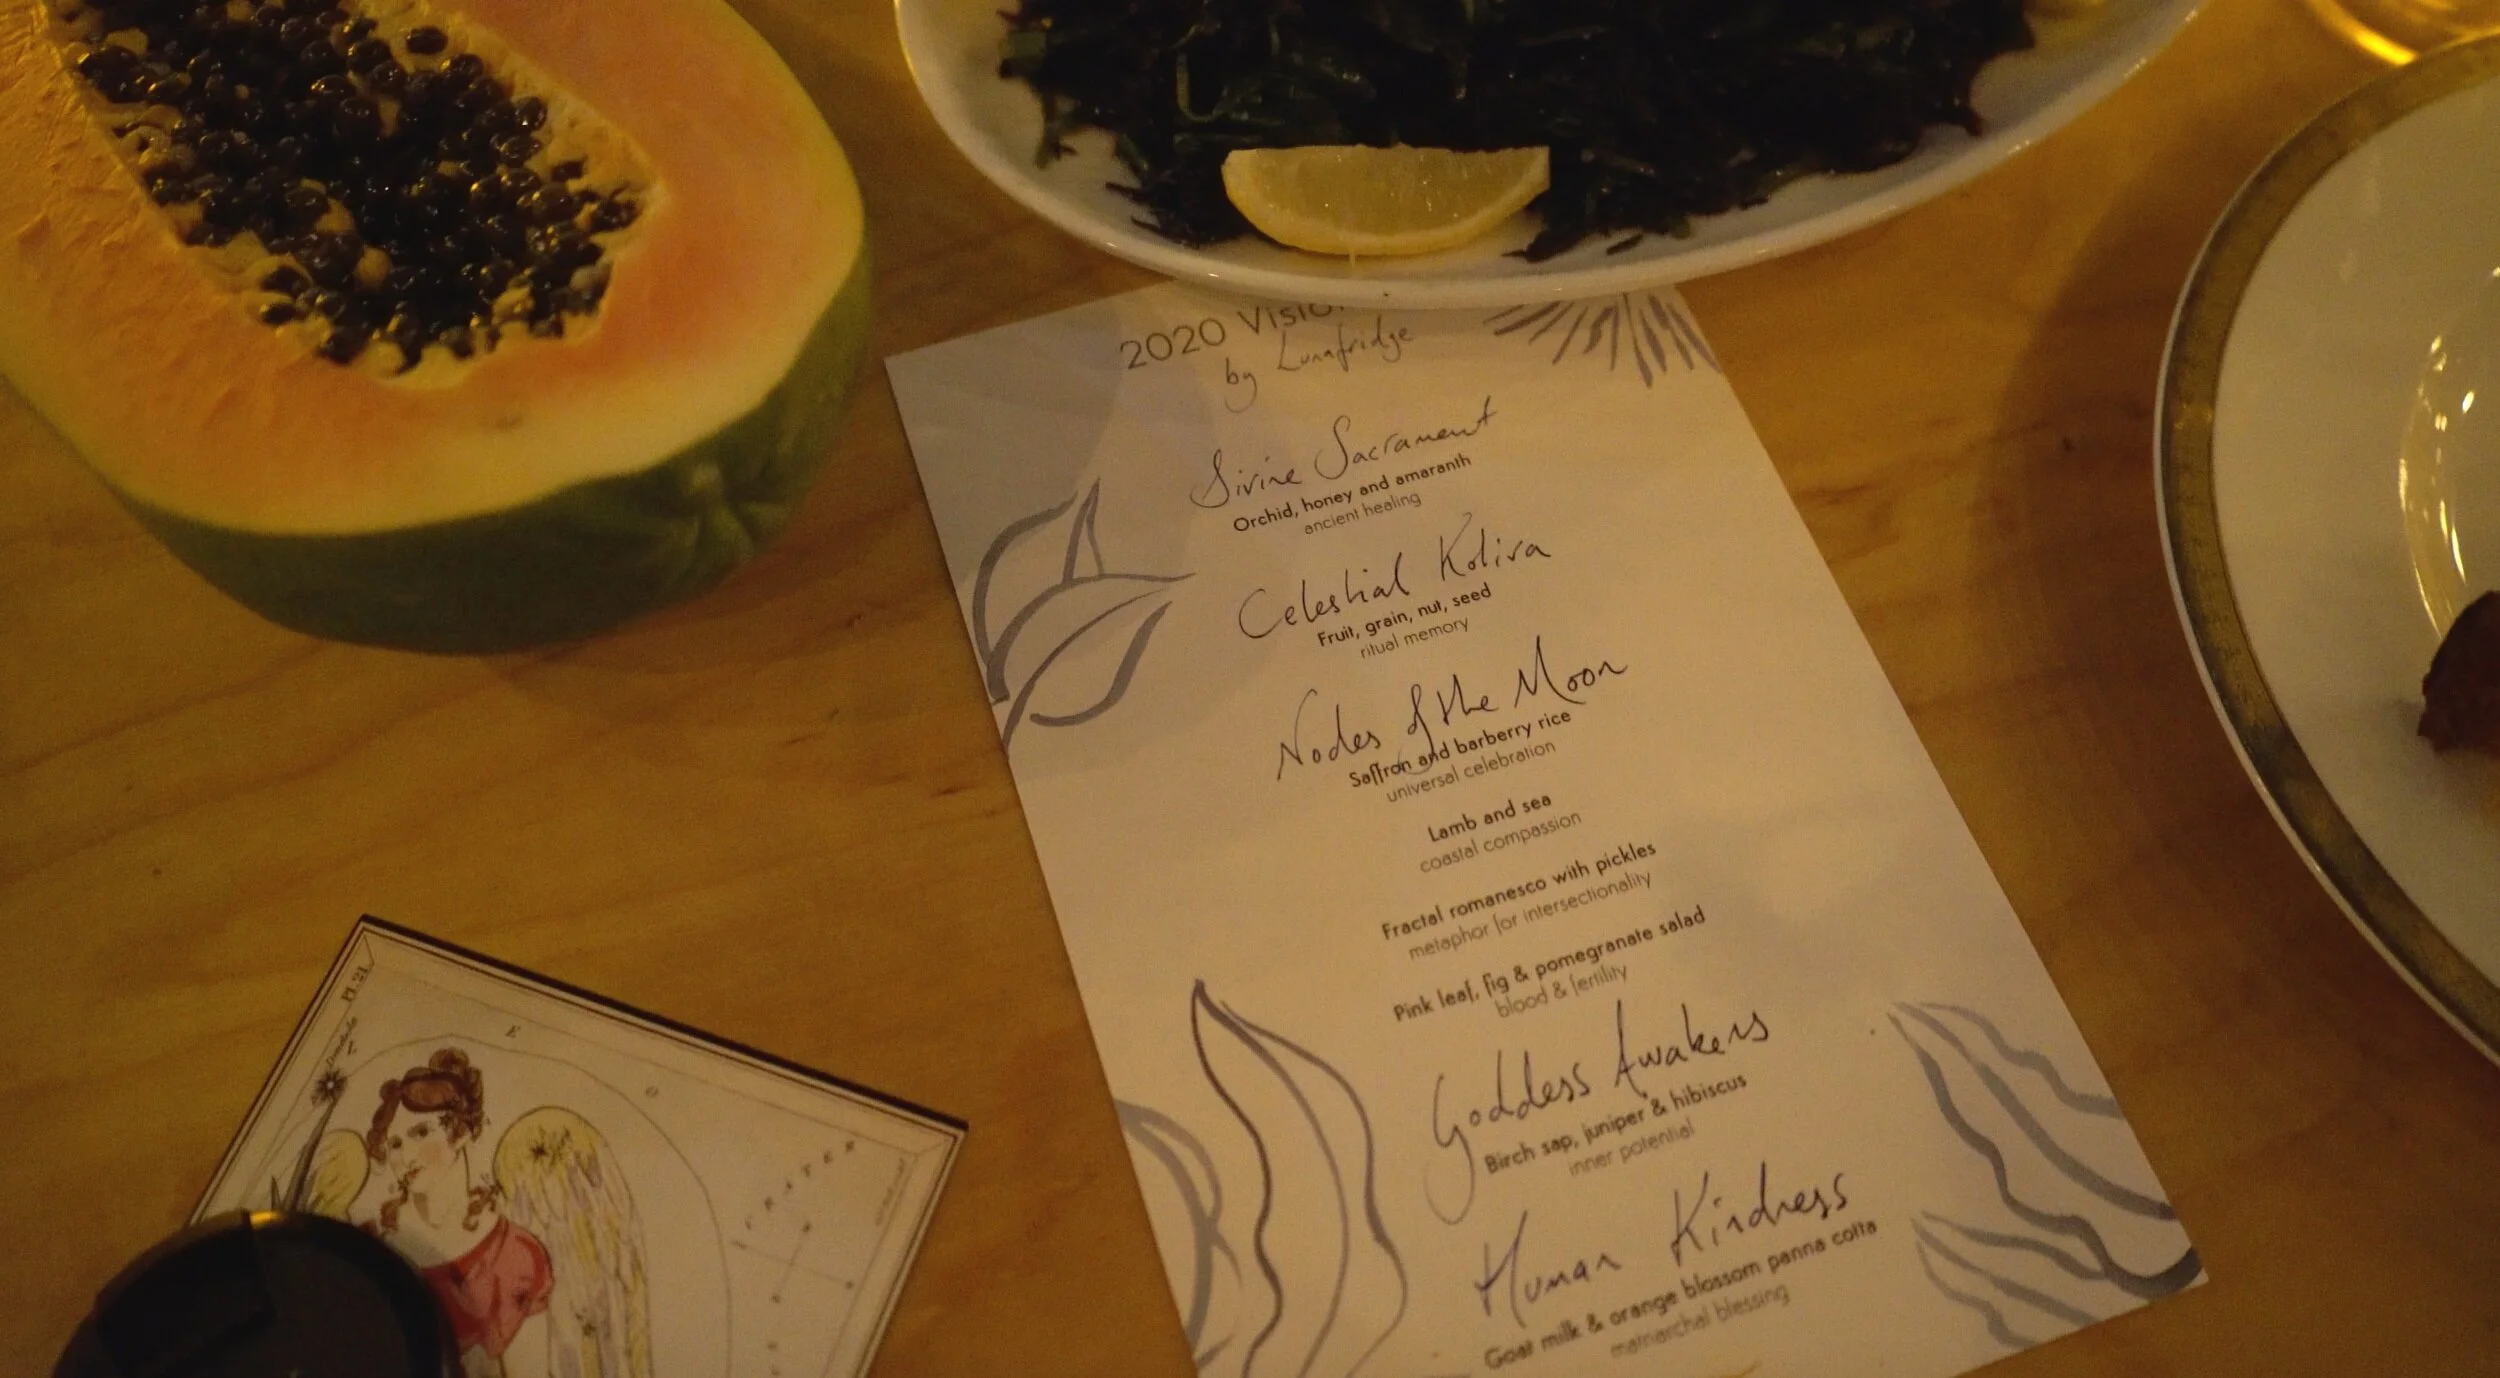 2020 Visio
by Lunafridge
Divine Sacrament
Orchid, honey and amaranth
ancient healing
Celestial Koliva
Fruit, grain, nut, seed
ritual memory
Nodes of the Moon
Saffron and barberry rice
universal celebration
Lamb and sea
coastal compassion
Fractal romanesco with pickles
metaphor for intersectionality
Pink leaf, fig & pomegranate salad
blood & fertility
Goddess Awakens
Birch sap, juniper & hibiscus
inner potential
Human Kindness
Goat milk & orange blossom panna cotta
matriarchal blessing
PL.21
E
O
CRATER